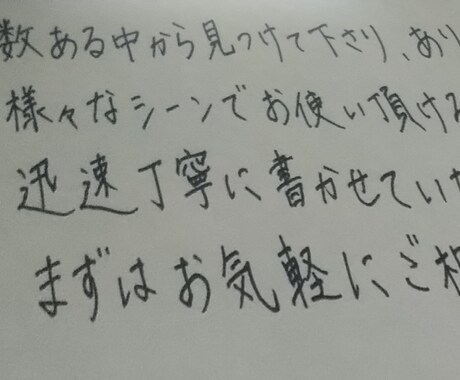 数ある中から見つけて下さり、あり
様々なシーンでお使い頂ける
迅速丁寧に書かせてい
まずはお気軽にご相